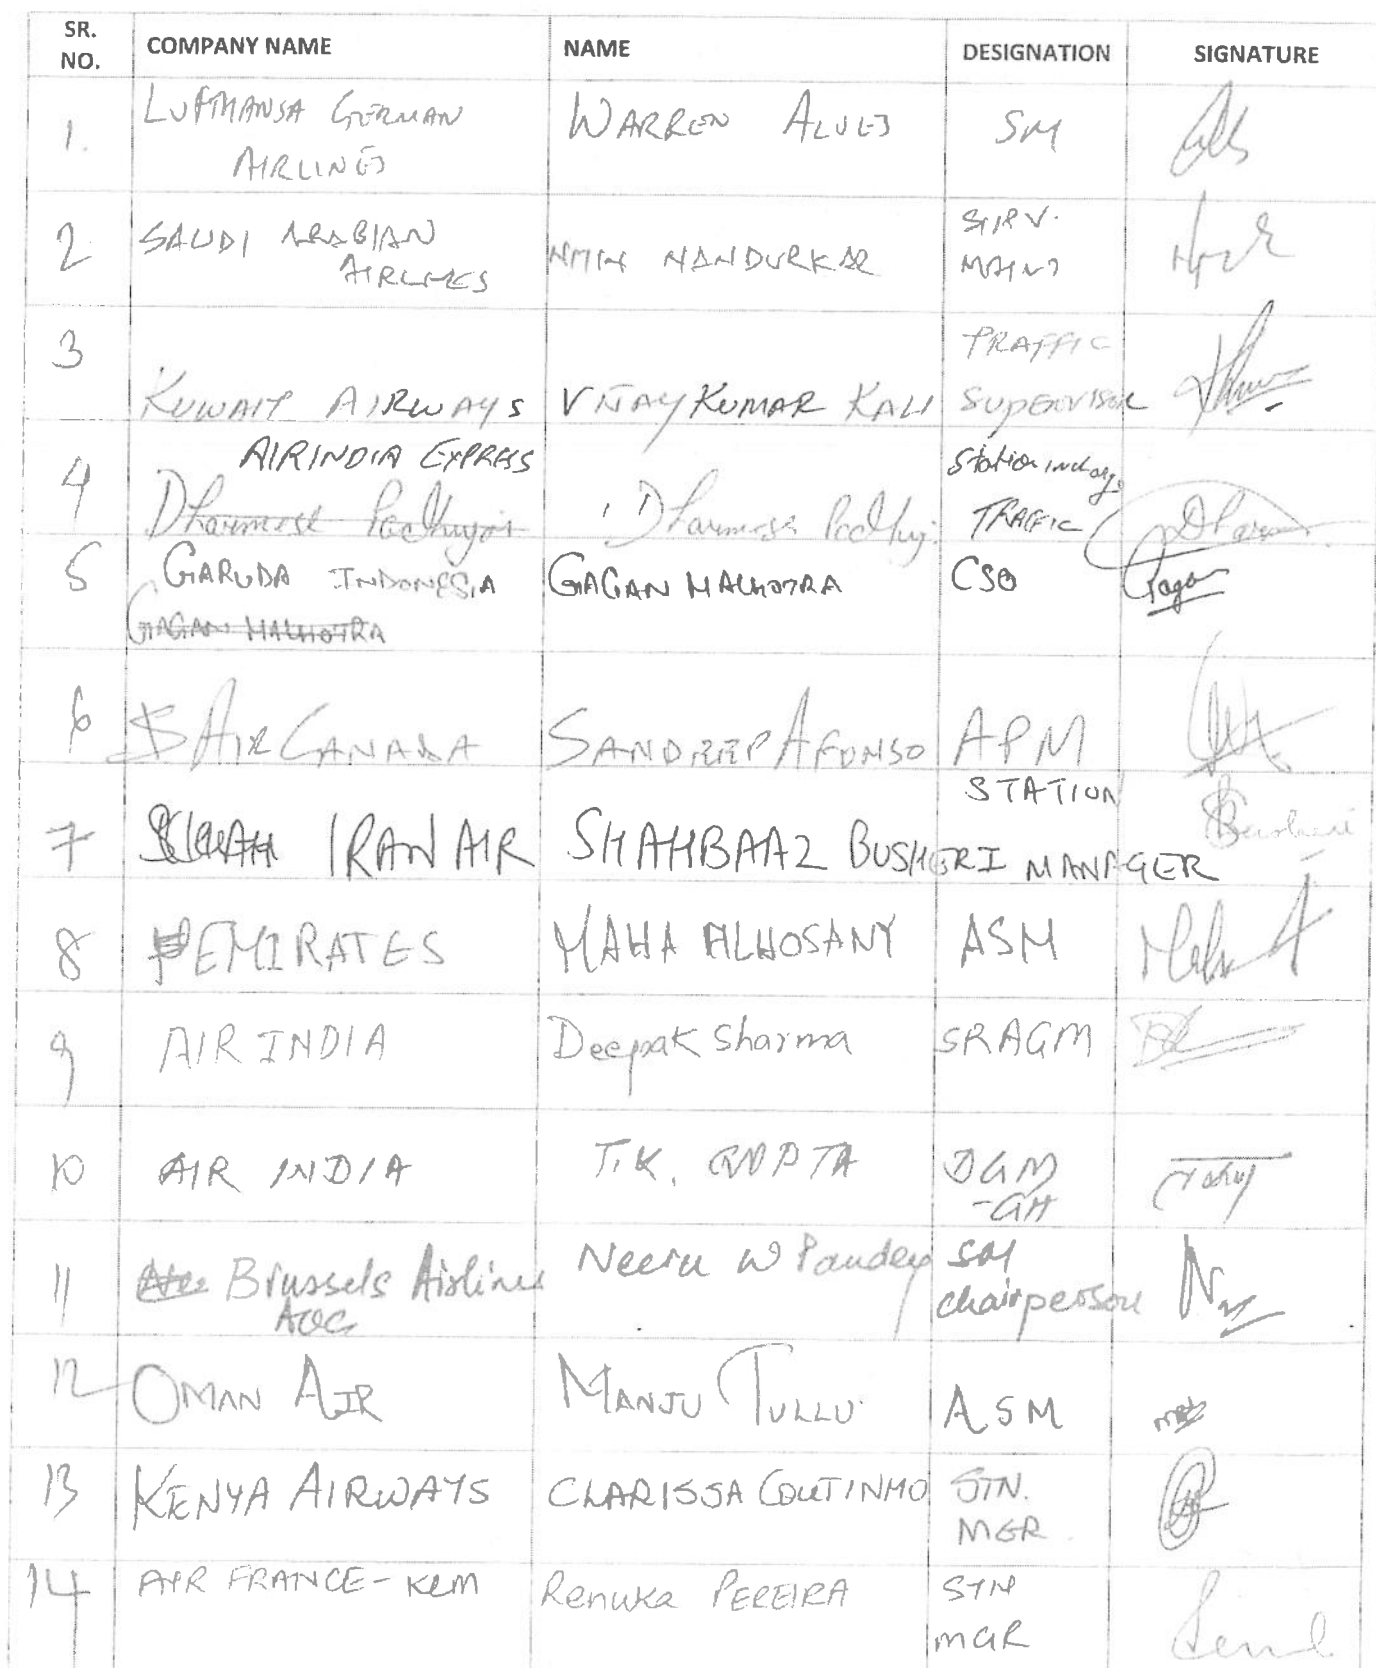 SR. NO. COMPANY NAME NAME DESIGNATION SIGNATURE
1. LUFTHANSA GERMAN AIRLINES WARREN ALVES SM
2 SAUDI ARABIAN AIRLINES NITIN NANDURKAR
3 KUWAIT AIRWAYS VIJAY KUMAR KALI TRAFFIC SUPERVISOR
4 AIRINDIA EXPRESS Dharmesh Station Incharge TRAFFIC
5 GARUDA INDONESIA GAGAN MALHOTRA CSO Gagan
GAGAN MALHOTRA
6 AIR CANADA SANDEEP AFONSO APM
7 IRAN AIR SHAHBAAZ BUSHERI STATION MANAGER
8 EMIRATES MAHA ALHOSANY ASM
9 AIR INDIA Deepak Sharma SRAGM
10 AIR INDIA T.K. GUPTA DGM -GH
11 Brussels Airlines AOC Neeru W Pandey SM chairperson
12 OMAN AIR MANJU TULLU ASM
13 KENYA AIRWAYS CLARISSA COUTINHO STN. MGR
14 AIR FRANCE - KLM Renuka PEREIRA STN MGR